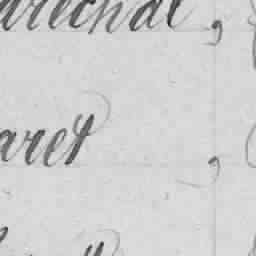 aréchal,
aret,